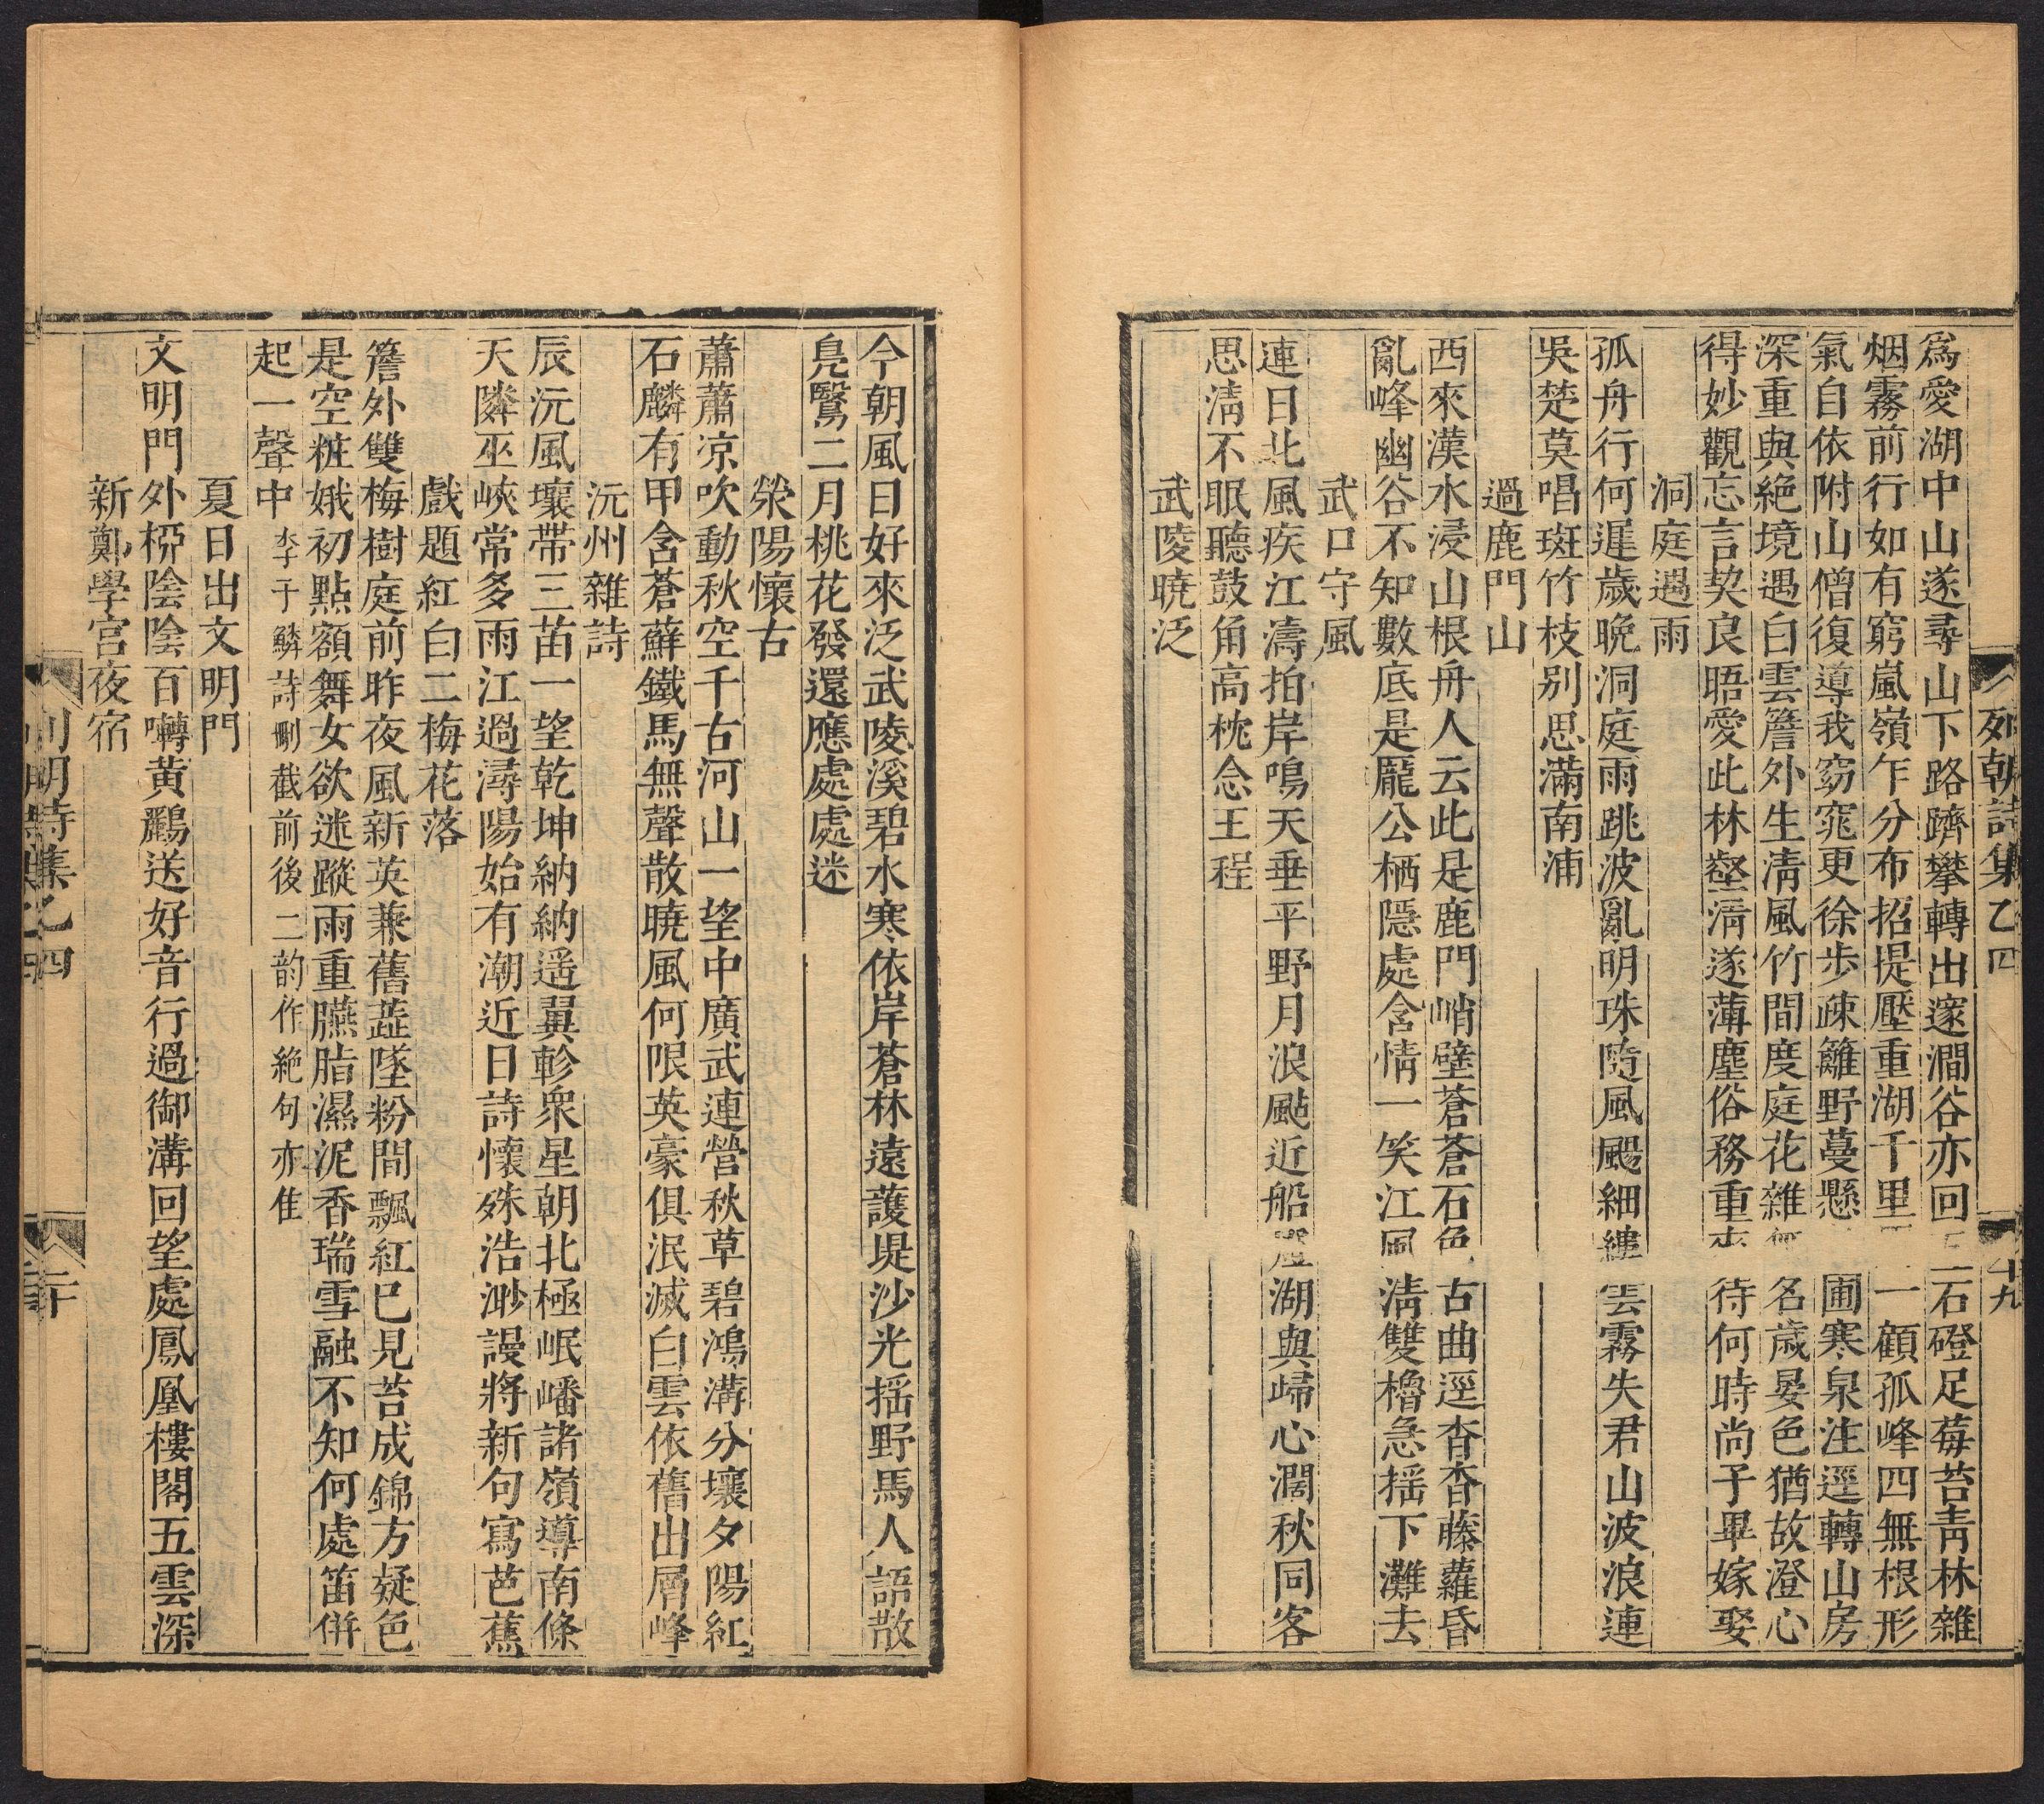 列朝詩集乙四
十九
爲愛湖中山遂尋山下路躋攀轉出邃澗谷亦回 石磴足莓苔靑林雜
烟霧前行如有窮嵐嶺乍分布招提壓重湖千里 一顧孤峰四無根形
氣自依附山僧復導我窈窕更徐步疎籬野蔓懸 圃寒泉注逕轉山房
深重與絶境遇白雲簷外生淸風竹間度庭花雜 名歲晏色猶故澄心
得妙觀忘言契良晤愛此林壑淸遂薄塵俗務重 待何時尚子畢嫁娶
洞庭遇雨
孤舟行何遲歲晩洞庭雨跳波亂明珠隨風颺細縷 雲霧失君山波浪連
吳楚莫唱斑竹枝别思滿南浦
過鹿門山
西來漢水浸山根舟人云此是鹿門峭壁蒼蒼石色 古曲逕杳杳藤蘿昏
亂峰幽谷不知數底是龎公栖隱處含情一笑江風淸雙櫓急揺下灘去
武口守風
連日北風疾江濤拍岸鳴天垂平野月浪颭近船 湖與歸心濶秋同客
思淸不眠聽鼓角高枕念王程
武陵曉泛
今朝風日好來泛武陵溪碧水寒依岸蒼林遠護堤沙光揺野馬人語散
鳧鷖二月桃花發還應處處迷
滎陽懷古
蕭蕭凉吹動秋空千古河山一望中廣武連營秋草碧鴻溝分壤夕陽紅
石麟有甲含蒼蘚鐵馬無聲散曉風何限英豪俱泯滅白雲依舊出層峰
沅州雜詩
辰沅風壤帶三苗一望乾坤納納遥翼軫衆星朝北極岷嶓諸嶺導南條
天隣巫峽常多雨江過潯陽始有潮近日詩懷殊浩渺謾將新句寫芭蕉
戲題紅白二梅花落
簷外雙梅樹庭前昨夜風新英兼舊蘂墜粉間飄紅已見苔成錦方疑色
是空粧娥初點額舞女欲迷蹤雨重臙脂濕泥香瑞雪融不知何處笛併
起一聲中李于鱗詩删截前後二韵作絶句亦佳
夏日出文明門
文明門外柳陰陰百囀黄鸝送好音行過御溝回望處鳳凰樓閣五雲深
新鄭學宫夜宿
列朝詩集乙四
二十